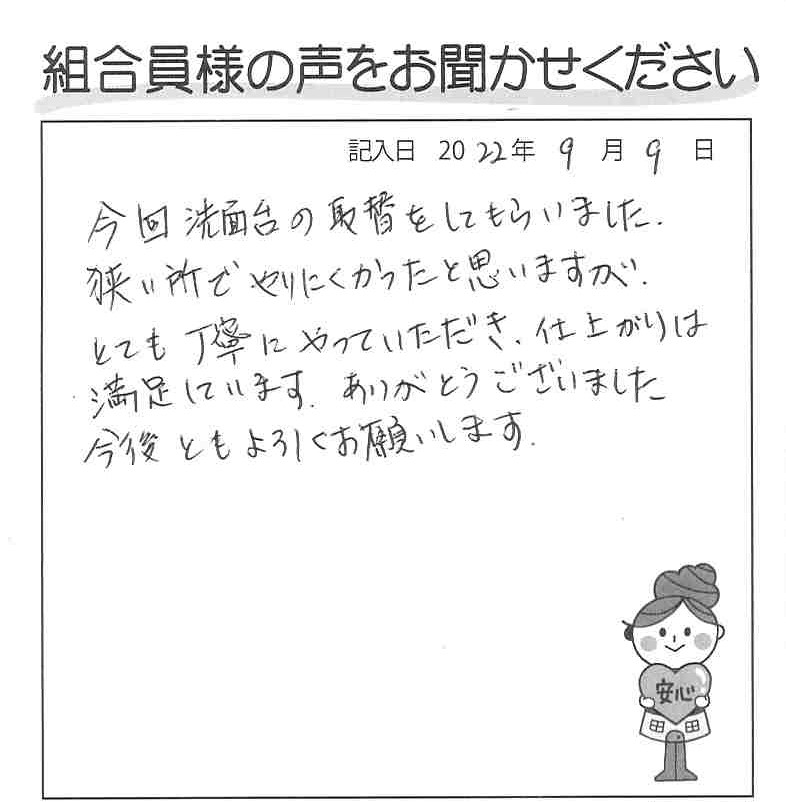 組合員様の声をお聞かせください
記入日 2022年 9月 9日
今回洗面台の取替をしてもらいました.
狭い所でやりにくかったと思いますが.
とても丁寧にやっていただき、仕上がりは
満足しています. ありがとうございました
今後ともよろしくお願いします.
安心